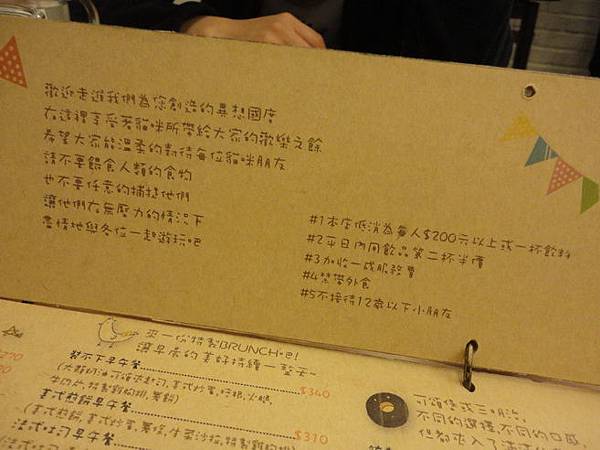 歡迎走進我們為您創造的異想國度
在這裡享受著貓咪所帶給大家的歡樂之餘
希望大家能溫柔的對待每位貓咪朋友
請不要餵食人類的食物
也不要任意的捕捉他們
讓他們在無壓力的情況下
盡情地與各位一起遊玩吧
#1本店低消為每人$200元以上或一杯飲料
#2平日內用飲品第二杯半價
#3加收一成服務費
#4禁帶外食
#5不接待12歲以下小朋友
來一份特製BRUNCH吧!
讓早晨的美好持續一整天~
製不下早午餐 $340
美式煎餅早午餐 $310
(美式煎餅、美式炒蛋、薯條、生菜沙拉、特製雞胸排)
法式吐司早午餐
270
可頌堡或三明治,
不同的選擇不同的口感,